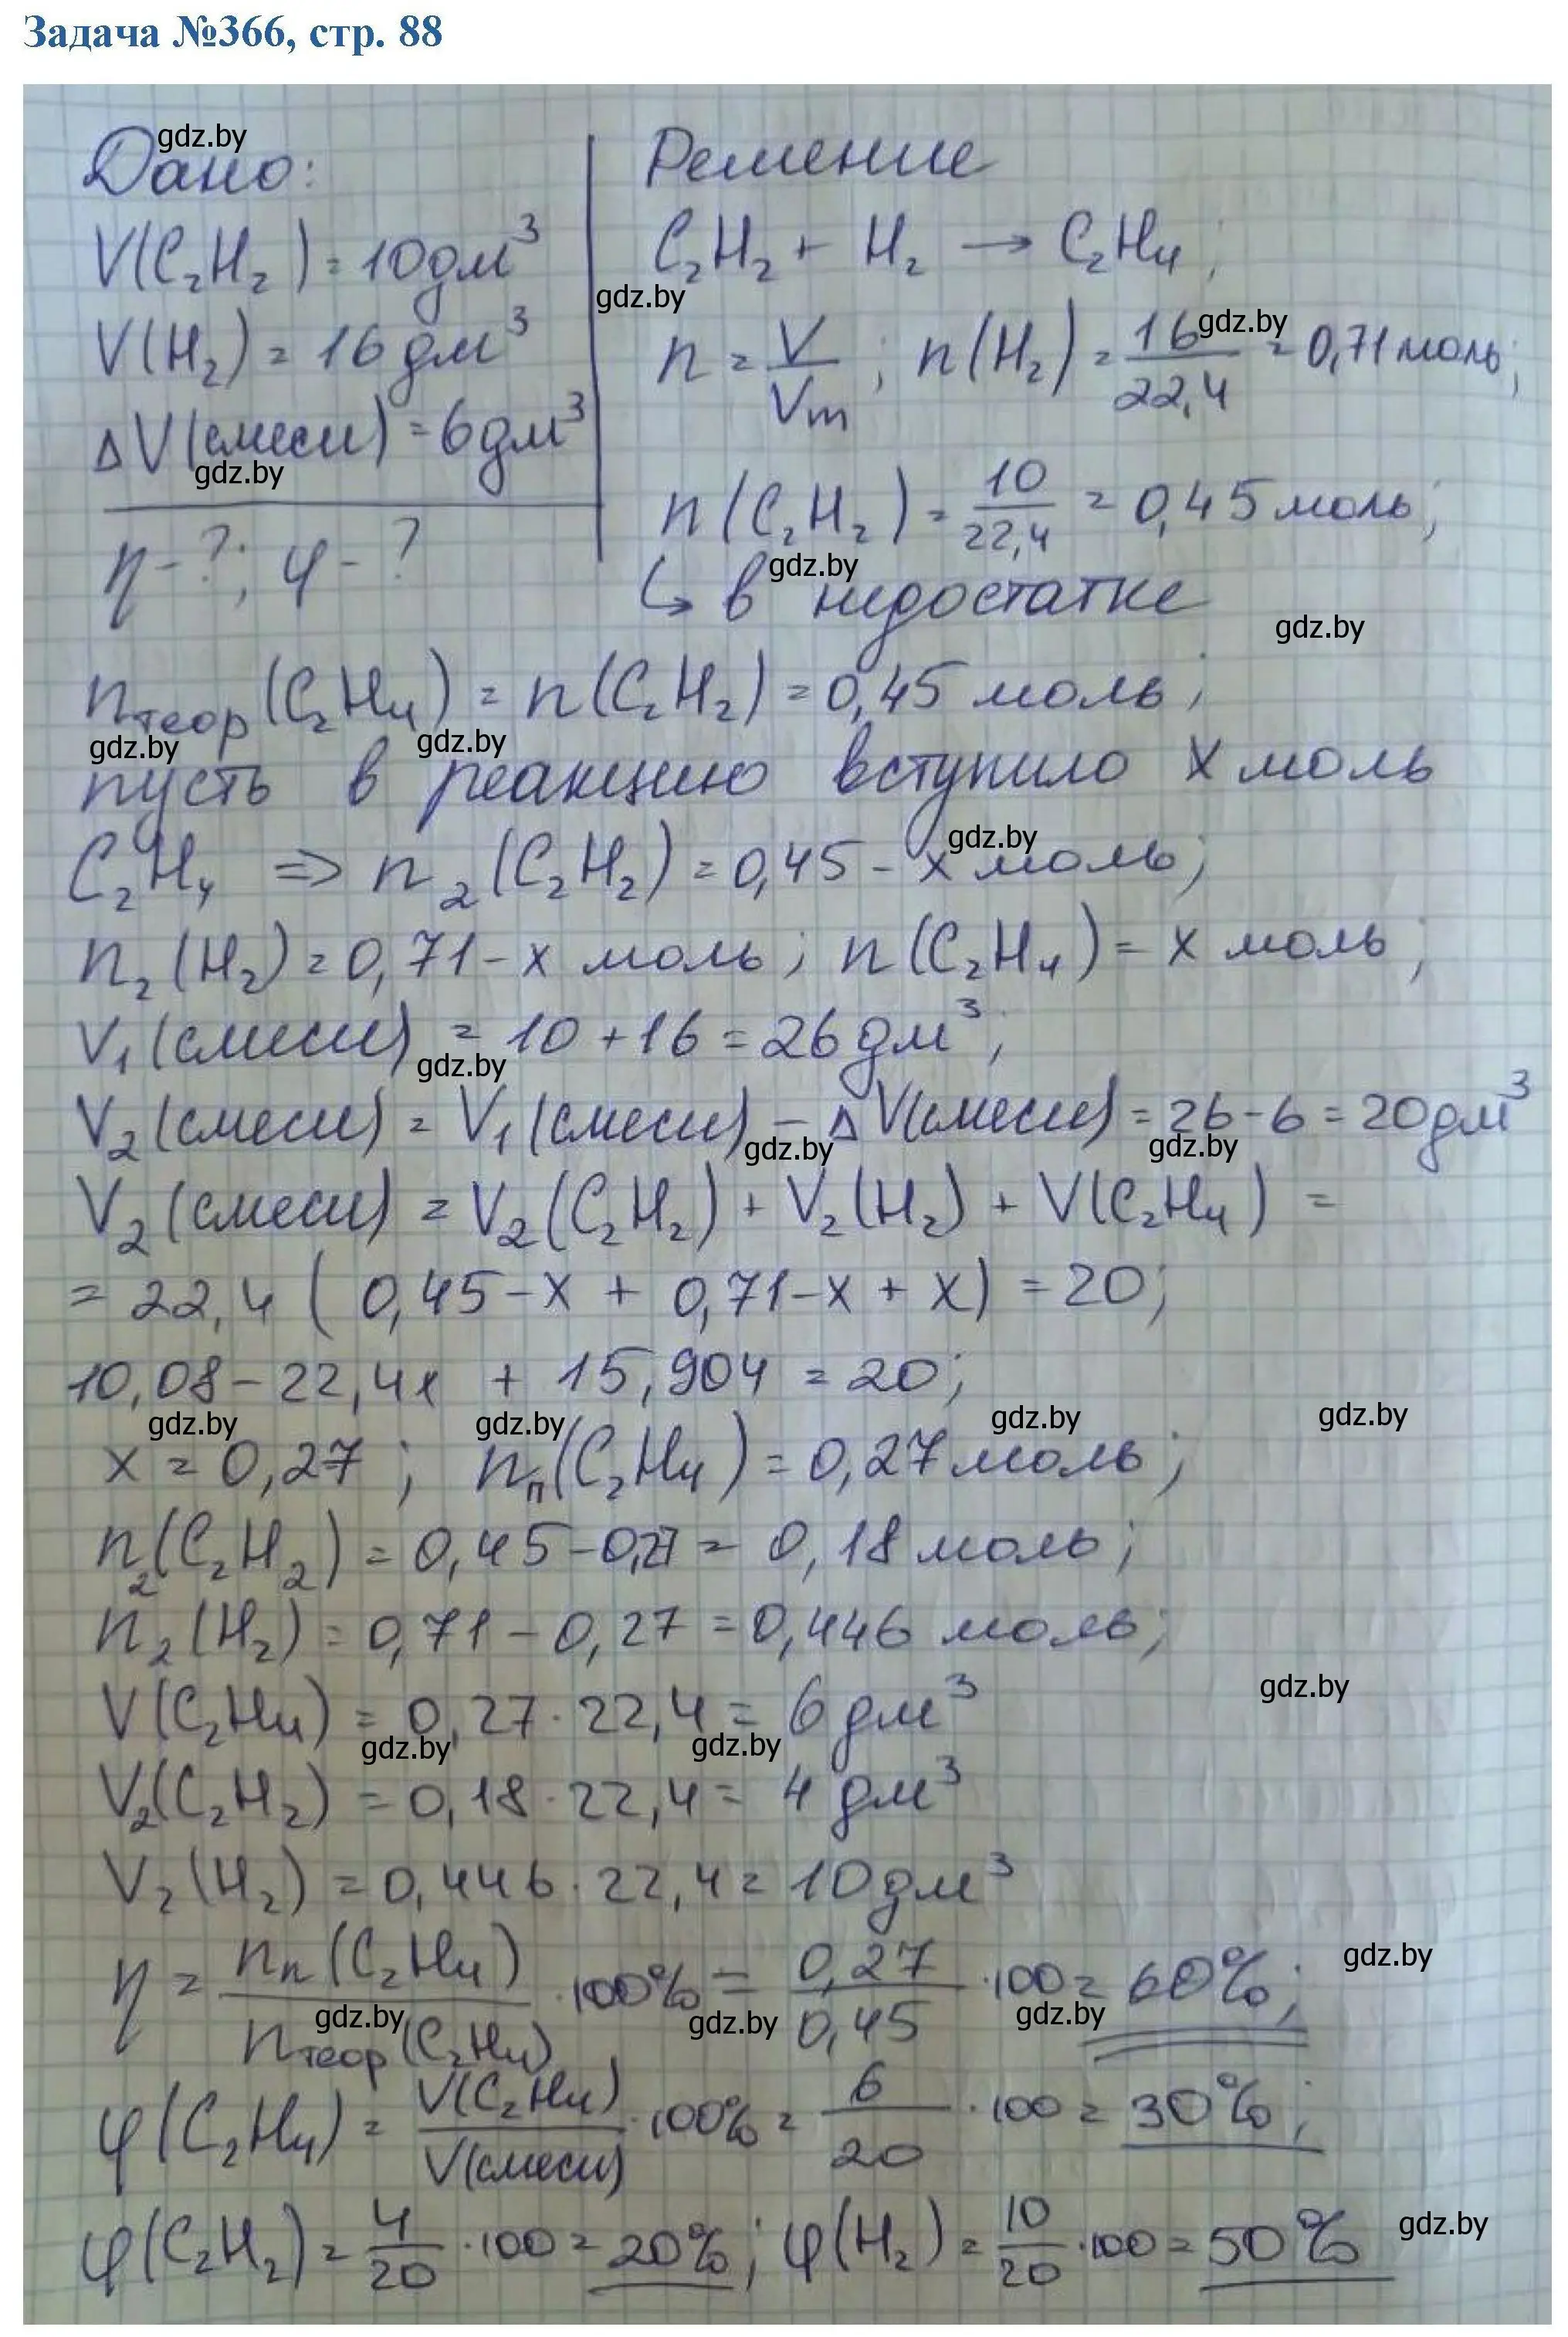 Задача №366, стр. 88
Дано:
V(C₂H₂) = 10 дм³
V(H₂) = 16 дм³
ΔV(смеси) = 6 дм³
η - ?; φ - ?
Решение
C₂H₂ + H₂ → C₂H₄;
n = V/Vm; n(H₂) = 16/22,4 = 0,71 моль;
n(C₂H₂) = 10/22,4 = 0,45 моль;
↳ в недостатке
nтеор(C₂H₄) = n(C₂H₂) = 0,45 моль;
пусть в реакцию вступило x моль
C₂H₄ ⇒ n₂(C₂H₂) = 0,45 - x моль;
n₂(H₂) = 0,71 - x моль; n(C₂H₄) = x моль;
V₁(смеси) = 10 + 16 = 26 дм³;
V₂(смеси) = V₁(смеси) - ΔV(смеси) = 26 - 6 = 20 дм³
V₂(смеси) = V₂(C₂H₂) + V₂(H₂) + V(C₂H₄) =
= 22,4 (0,45 - x + 0,71 - x + x) = 20;
10,08 - 22,4x + 15,904 = 20;
x = 0,27; nп(C₂H₄) = 0,27 моль;
n₂(C₂H₂) = 0,45 - 0,27 = 0,18 моль;
n₂(H₂) = 0,71 - 0,27 = 0,446 моль;
V(C₂H₄) = 0,27 · 22,4 = 6 дм³
V₂(C₂H₂) = 0,18 · 22,4 = 4 дм³
V₂(H₂) = 0,446 · 22,4 = 10 дм³
η = nп(C₂H₄)/nтеор(C₂H₄) · 100% = 0,27/0,45 · 100 = 60%;
φ(C₂H₄) = V(C₂H₄)/V(смеси) · 100% = 6/20 · 100 = 30%;
φ(C₂H₂) = 4/20 · 100 = 20%; φ(H₂) = 10/20 · 100 = 50%